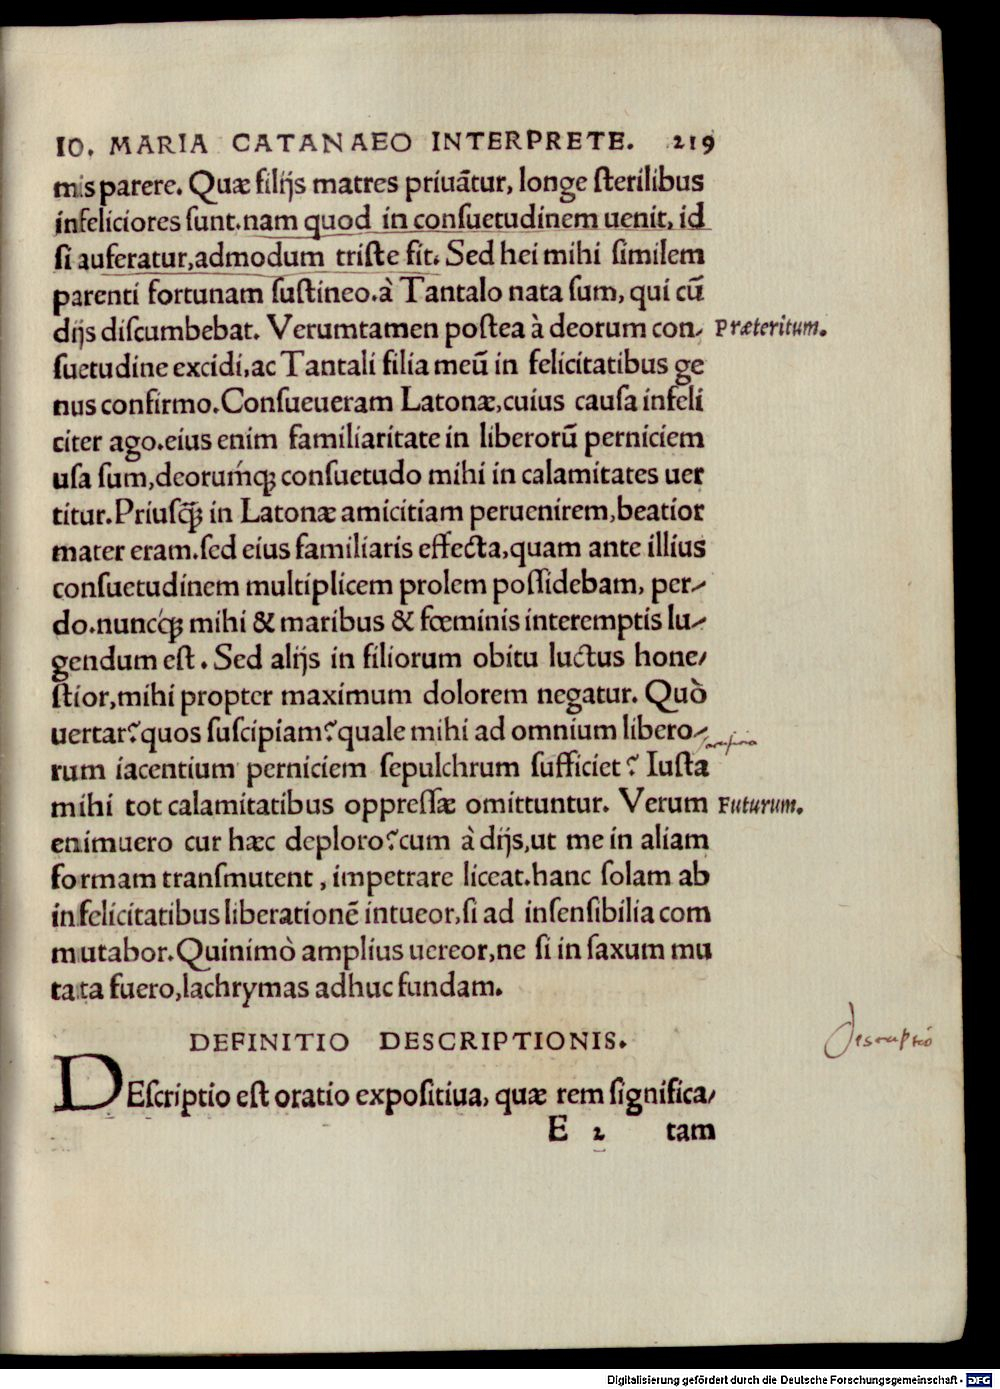 IO. MARIA CATANAEO INTERPRETE. 219
mis parere. Quæ filijs matres priuātur, longe ſterilibus
infeliciores ſunt.nam quod in conſuetudinem uenit, id
ſi auferatur,admodum triſte fit. Sed hei mihi ſimilem
parenti fortunam ſuſtineo.à Tantalo nata ſum, qui cū
dijs diſcumbebat. Verumtamen poſtea à deorum con-
Præteritum.
ſuetudine excidi,ac Tantali filia meū in felicitatibus ge
nus confirmo.Conſueueram Latonæ,cuius cauſa infeli
citer ago.eius enim familiaritate in liberorū perniciem
uſa ſum,deorumq́ꝫ conſuetudo mihi in calamitates uer
titur.Priuſq̃ꝫ in Latonæ amicitiam peruenirem,beatior
mater eram.ſed eius familiaris effecta,quam ante illius
conſuetudinem multiplicem prolem poſſidebam, per-
do.nuncq́ꝫ mihi & maribus & fœminis interemptis lu-
gendum eſt. Sed alijs in filiorum obitu luctus hone-
ſtior,mihi propter maximum dolorem negatur. Quò
uertar?quos ſuſcipiam?quale mihi ad omnium libero-
rum iacentium perniciem ſepulchrum ſufficiet? Iuſta
mihi tot calamitatibus oppreſſæ omittuntur. Verum
Futurum.
enimuero cur hæc deploro?cum à dijs,ut me in aliam
formam tranſmutent, impetrare liceat.hanc ſolam ab
infelicitatibus liberationē intueor,ſi ad inſenſibilia com
mutabor.Quinimò amplius uereor,ne ſi in ſaxum mu
tata fuero,lachrymas adhuc fundam.
DEFINITIO DESCRIPTIONIS.
descriptio
DEſcriptio eſt oratio expoſitiua, quæ rem ſignifica-
E 2 tam
Digitalisierung gefördert durch die Deutsche Forschungsgemeinschaft - DFG